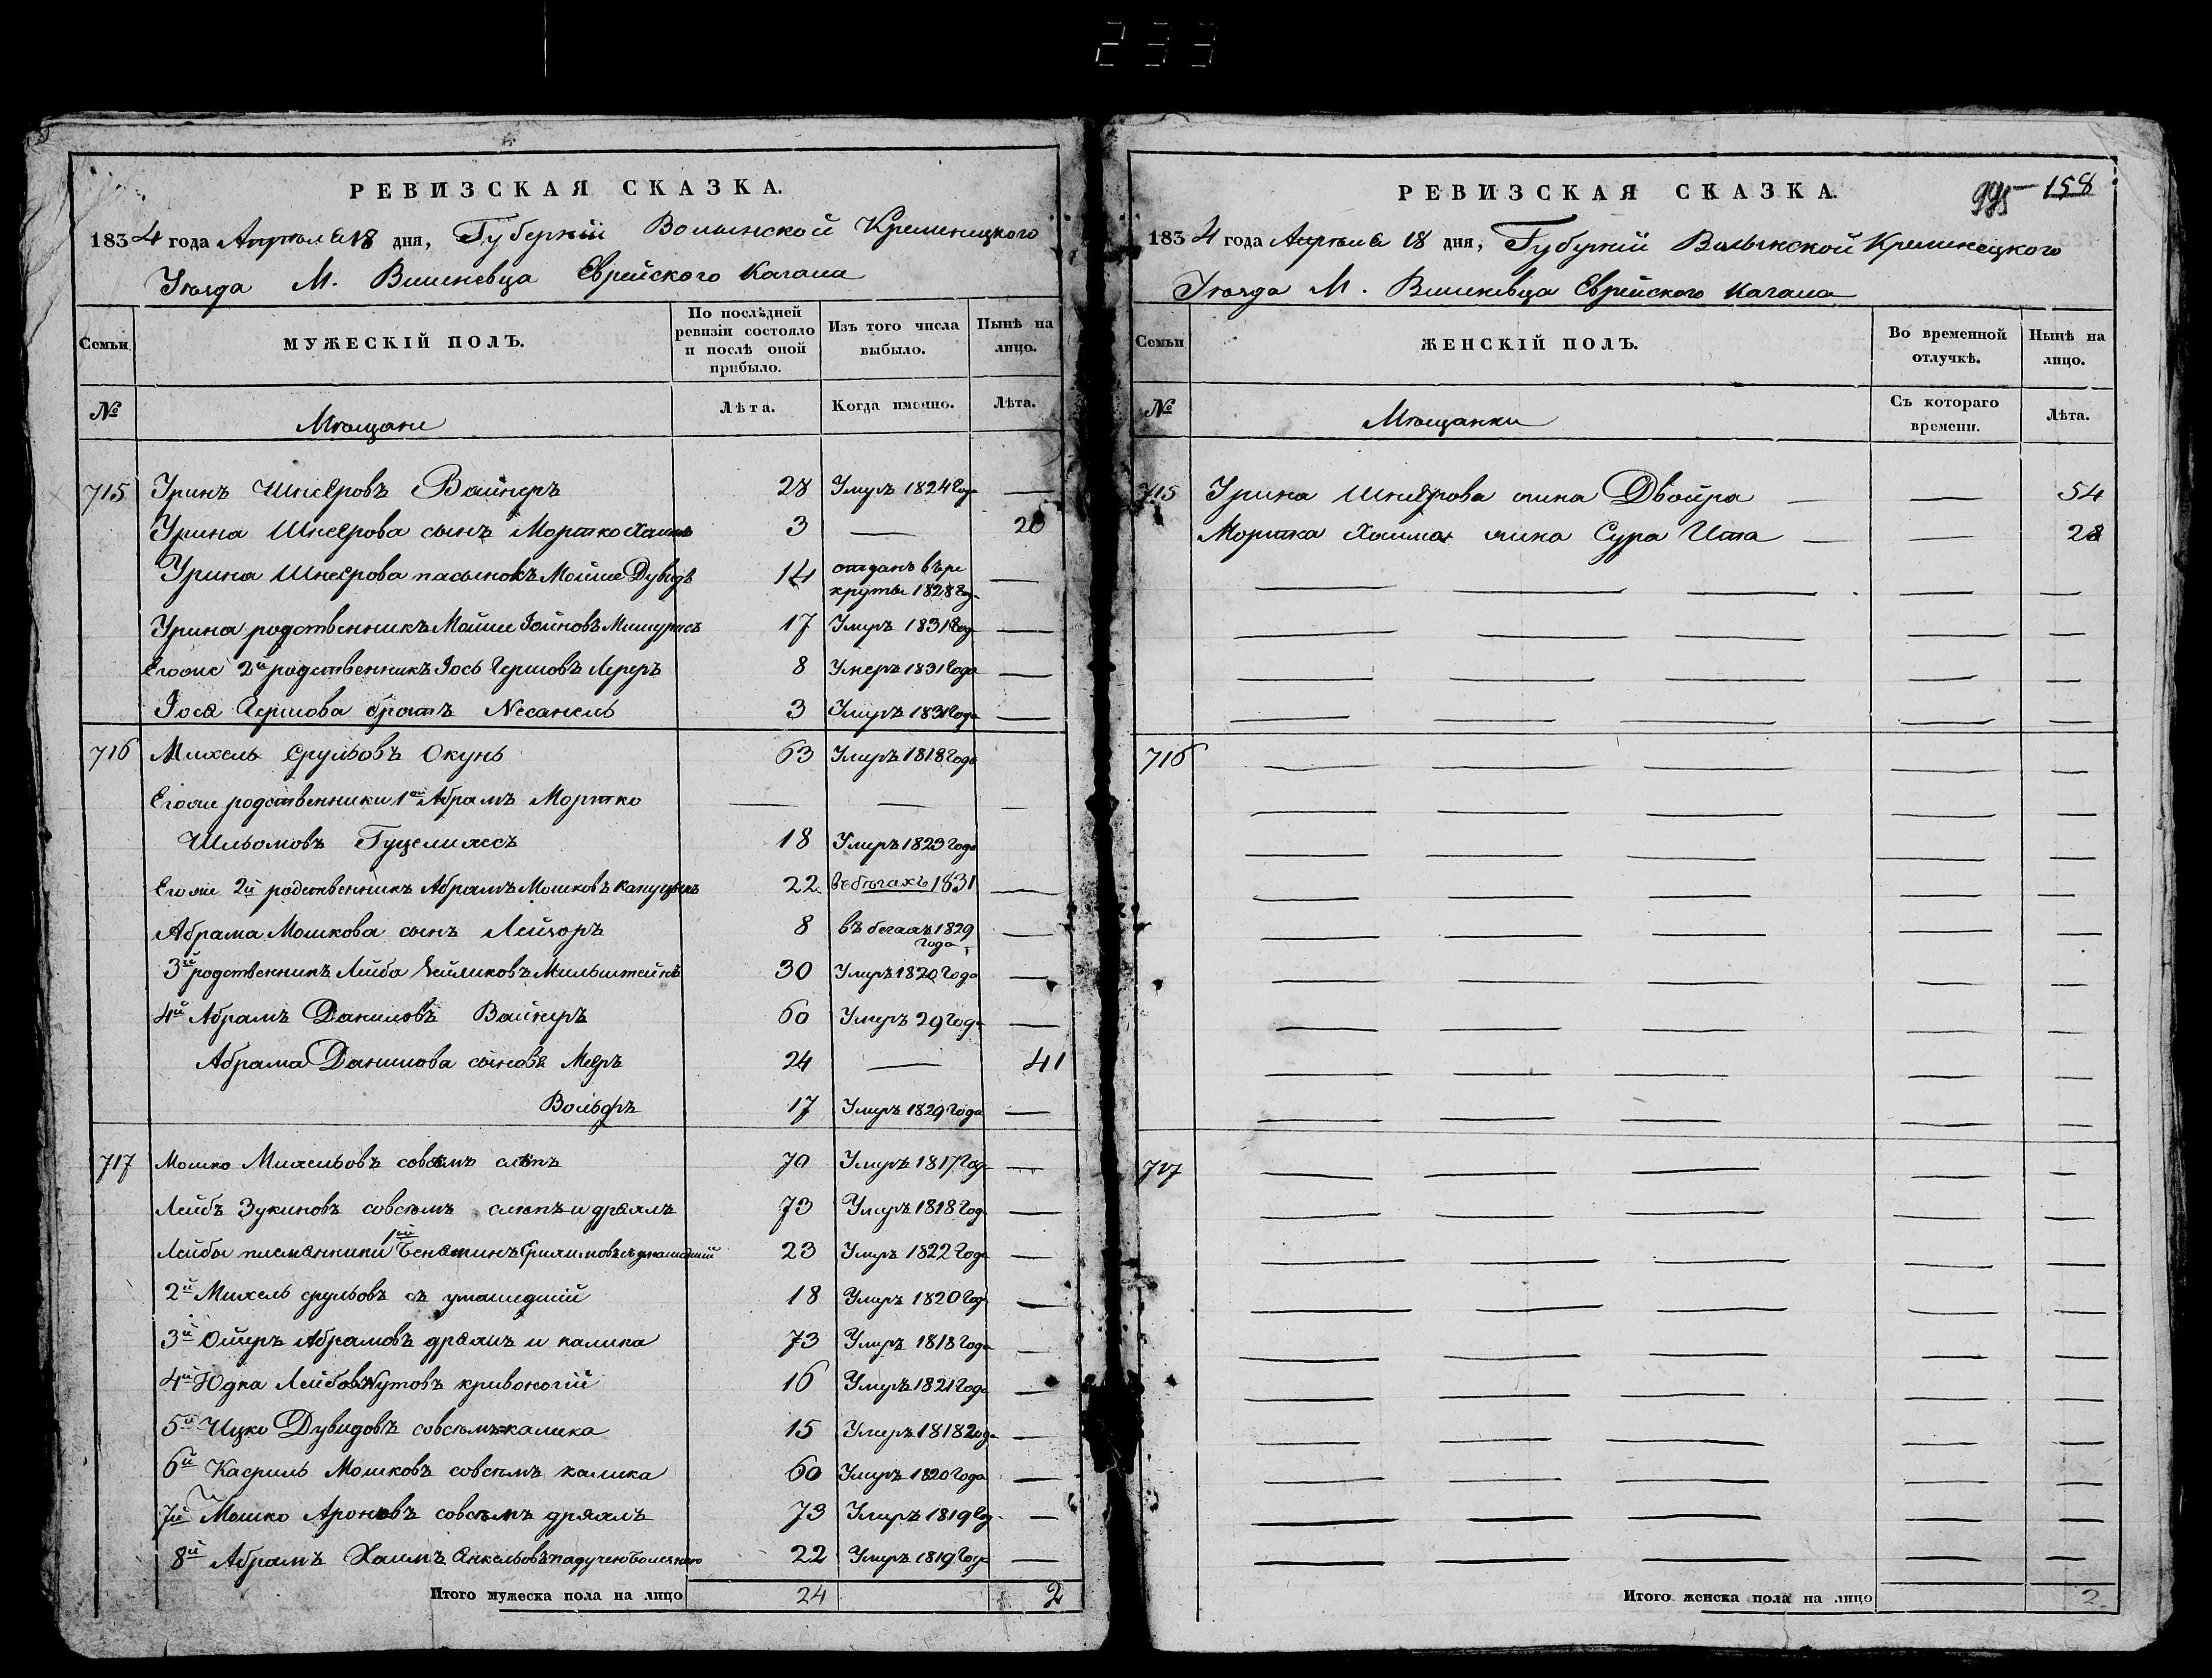 233
РЕВИЗСКАЯ СКАЗКА.
1834 года Апреля 18 дня, Губерніи Волынской Кременецкого
Уѣзда М. Вишневца Еврейского Кагала
Семьи
МУЖЕСКІЙ ПОЛЪ.
По послѣдней ревизіи состояло и послѣ оной прибыло.
Изъ того числа выбыло.
Нынѣ на лицо.
№
Мѣщане
Лѣта.
Когда именно.
Лѣта.
715 Уринъ Шнеёровъ Вайнеръ 28 Умеръ 1824 Года —
Урина Шнеёрова сынъ Мортко Хаимъ 3 —
Урина Шнеёрова пасынокъ Мойше Дувидъ 14 отданъ въ ре
круты 1828 го. —
Урина родственникъ Мойше 17 Умеръ 1831 Год —
Егоже 2й родственникъ Іось Гершовъ Лереръ 8 Умеръ 1831 Года —
Іося Гершова братъ Несанель 3 Умеръ 1831 Года —
716 Михель Срульовъ Окунь 63 Умеръ 1818 Года
Егоже родственники 1ый Абрамъ Мортко — — —
Шльомовъ 18 Умеръ 1829 Года
Егоже 2й родственникъ Абрамъ Мошковъ 22 въ бѣгахъ 1831 —
Абрама Мошкова сынъ Лейзоръ 8 въ бегахъ 1829 —
года
3й родственникъ Лейба Мильштейнъ 30 Умеръ 1820 Года —
4й Абрамъ Даниловъ Вайнеръ 60 Умеръ 29 Года —
Абрама Данилова сыновя Мееръ 24 — 41
Вольфъ 17 Умеръ 1829 Года —
717 Мошко Михельовъ совсемъ слѣпъ 70 Умеръ 1817 Год —
Лейбъ совсѣмъ слѣпъ и дряхлъ 73 Умеръ 1818 Год —
Лейбы племянники 1ый 23 Умеръ 1822 Года —
2й Михель срульовъ съ умашедшій 18 Умеръ 1820 Год —
3й Ошеръ Абрамовъ дряхлъ и калика 73 Умеръ 1818 Года —
4й Юдка Лейбовъ Нутовъ кривоногій 16 Умеръ 1821 Года —
5й Ицко Дувидовъ совсѣмъ калека 15 Умеръ 1818 года —
6й Касриль Мошковъ совсѣмъ калика 60 Умеръ 1820 Года —
7й Мошко Ароновъ совсѣмъ дряхлъ 73 Умеръ 1819 го. —
8й Абрамъ Хаимъ Янкельовъ 22 Умеръ 1819 Года —
Итого мужеска пола на лицо 24 2
РЕВИЗСКАЯ СКАЗКА.
158
1834 года Апреля 18 дня, Губерніи Волынской Кременецкого
Уѣзда М. Вишневца Еврейского Кагала
Семьи
ЖЕНСКІЙ ПОЛЪ.
Во временной отлучкѣ.
Нынѣ на лицо.
№
Мѣщанки
Съ котораго времени.
Лѣта.
715 Урина Шнеёрова жина Двойра — — 54
Мортка Хаима жина Сура Ита — — 28
716
717
Итого женска пола на лицо 2